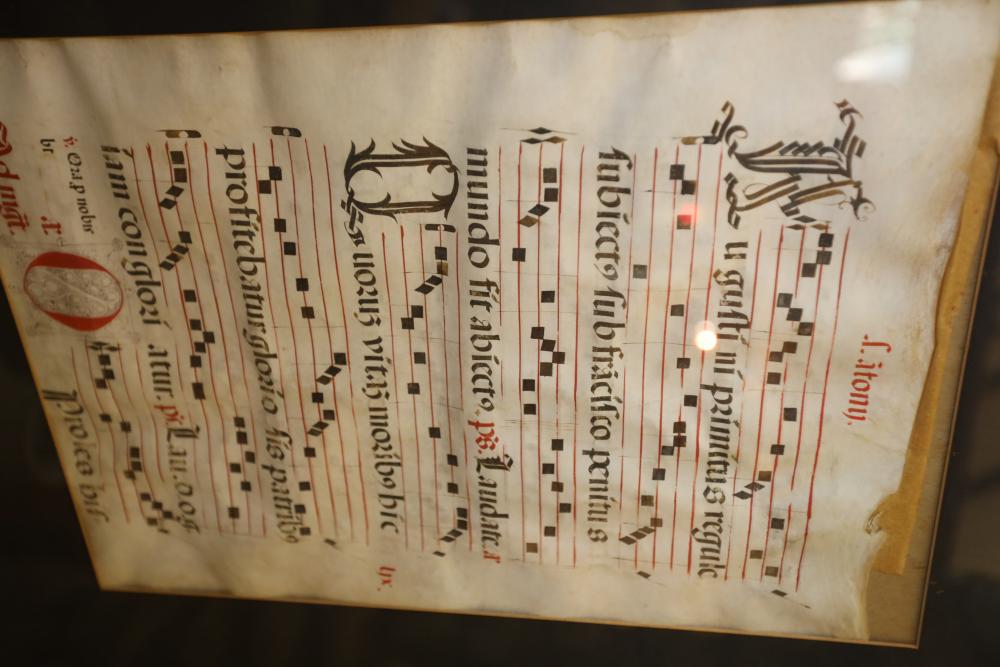 .S. ātonij.
Au gusti ni primitus regule
subiectꝰ sub frācisco penitus
mundo fit abiectꝰ. ps. Laudate. a
Quoruꝫ vitaꝫ moribꝰ hic
lix.
profitebatur glorio sis patribꝰ
iam conglori atur. ps. Lau. D. o. g.
℣. Ora p nobis
bt
Proles his
Ad mgt.